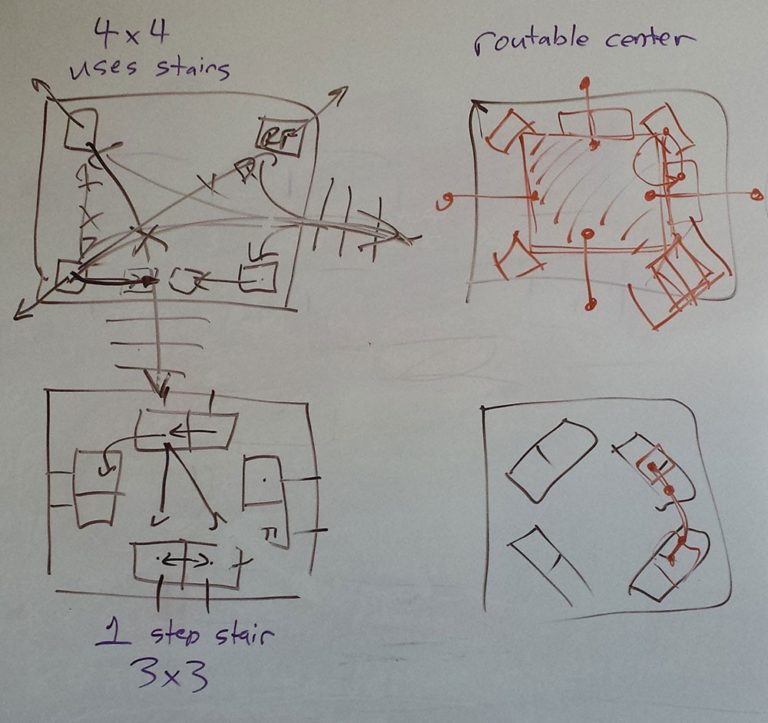 4x4
uses stairs
routable center
RF
1 step stair
3x3